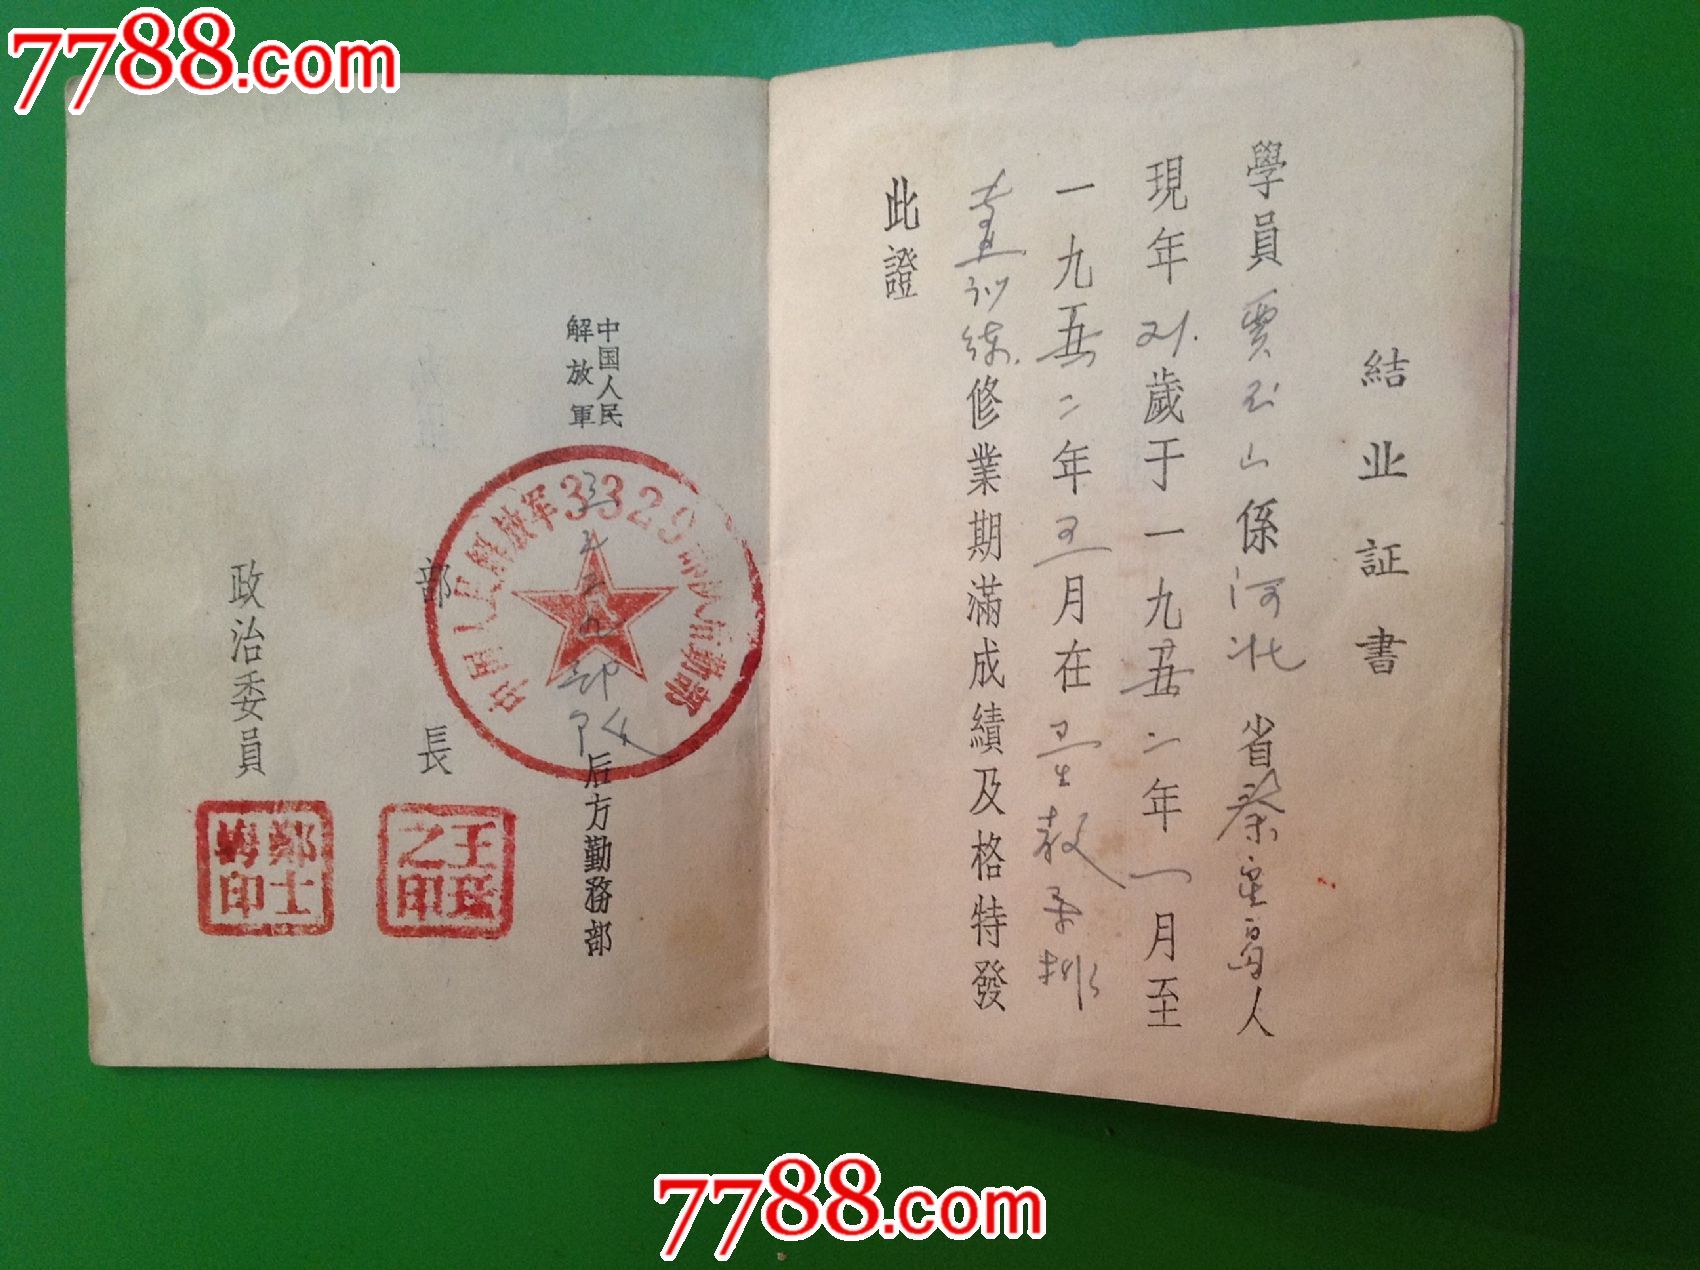 7788.com
結业証書
學員賈玉山係河北省人
現年21歲于一九五二年一月至
一九五二年五月在卫生教导排
訓练修業期滿成績及格特發
此證
中国人民
解放軍
三三二九部队后方勤務部
部長
政治委員
中国人民解放军3329部队后勤部
王
之印
鄭士
印
7788.com